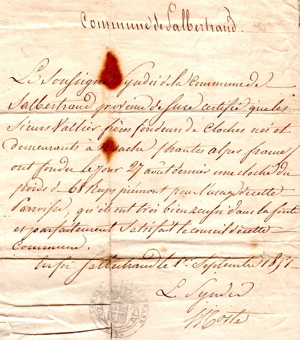 Commune de Salbertrand.
Le Soussigné Syndic de la Commune de
Salbertrand province de Suse certifie que les
Sieurs Vallier frères fondeurs de Cloches nés et
Demeurants à hautes alpes
ont fondu le jour 27 août dernier une cloche du
poids de 68 Rups piémont pour l'usage de cette
Paroisse qu'ils ont très bien dans la fonte
et parfaitement Satisfait le conseil de cette
Commune.
Salbertrand le 1er Septembre
Le Syndic